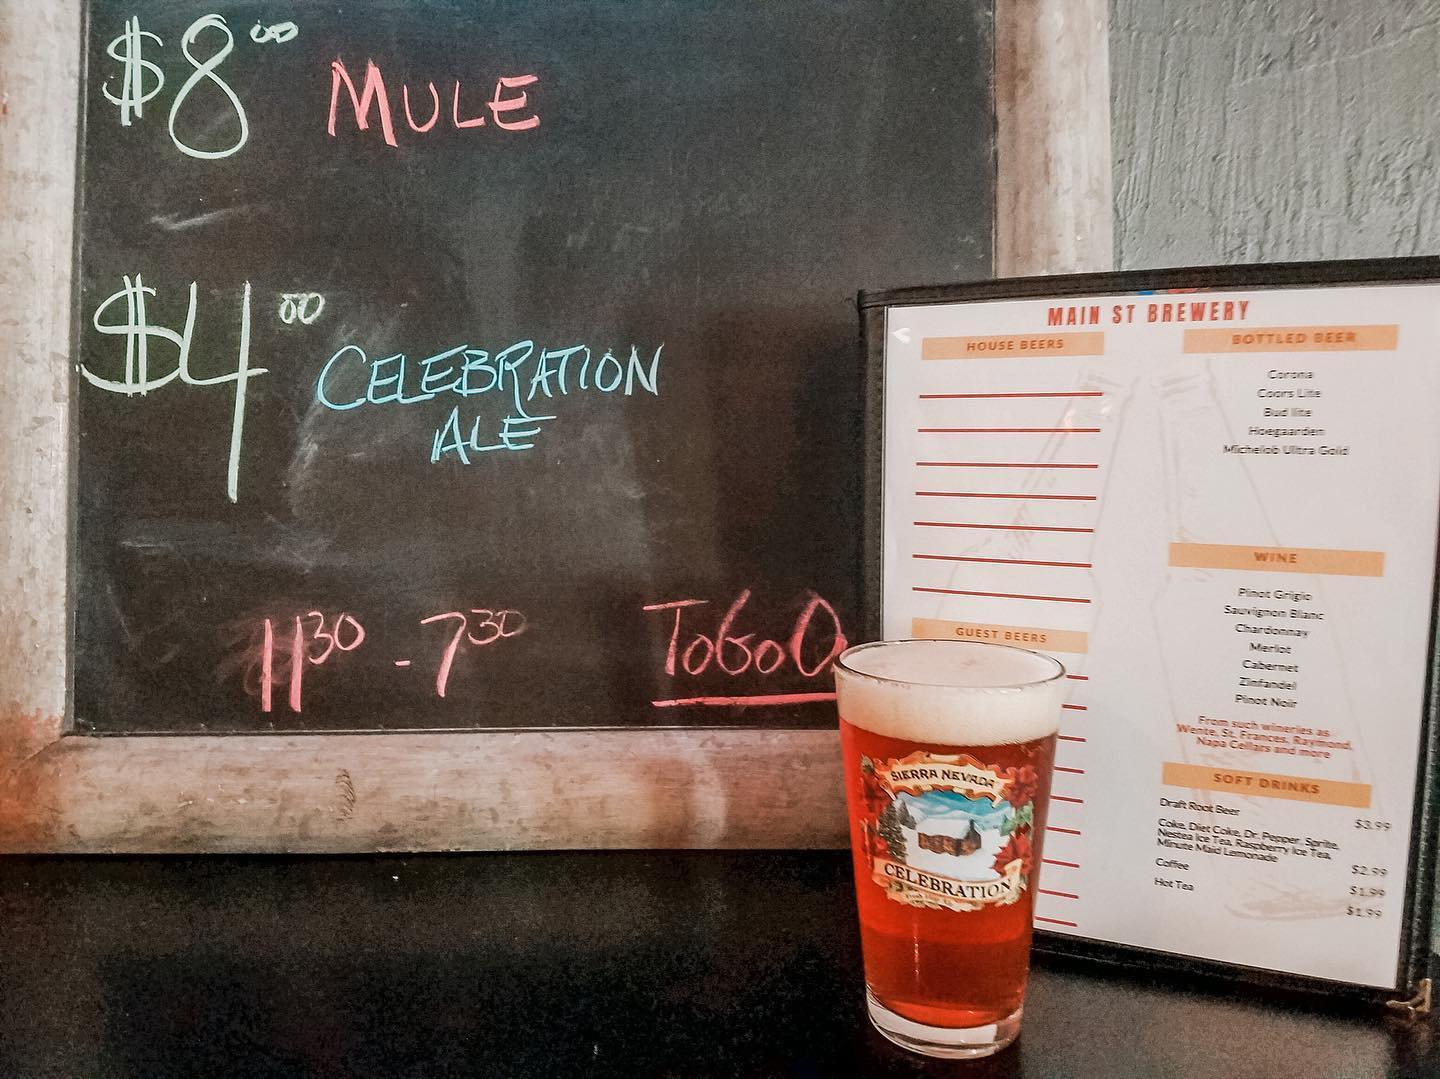 $8.00 MULE
$4.00 CELEBRATION
ALE
11:30 - 7:30
TOGO
MAIN ST BREWERY
HOUSE BEERS
GUEST BEERS
BOTTLED BEER
Corona
Coors Lite
Bud lite
Hoegaarden
Michelob Ultra Gold
WINE
Pinot Grigio
Sauvignon Blanc
Chardonnay
Merlot
Cabernet
Zinfandel
Pinot Noir
From such wineries as
Wente, St. Frances, Raymond,
Napa Cellars and more
SOFT DRINKS
Draft Root Beer $3.99
Coke, Diet Coke, Dr. Pepper, Sprite,
Nestea Ice Tea, Raspberry Ice Tea,
Minute Maid Lemonade $2.99
Coffee $1.99
Hot Tea $1.99
SIERRA NEVADA
CELEBRATION